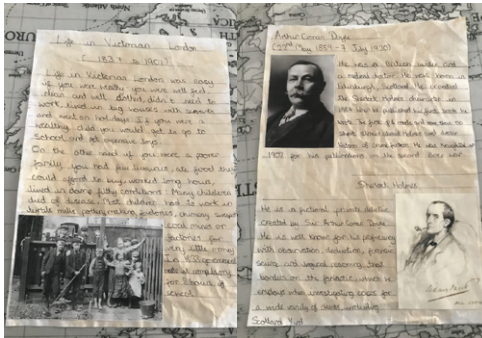 Life in Victorian London
(1837 to 1901)
Life in Victorian London was easy
if you were wealthy you were well fed
clean and well clothed, didn't need to
work, lived in big houses with servants
and went on holidays. If you were a
wealthy child you would get to go to
school and get expensive toys.
On the other hand if you were a poorer
family you had few luxuries, ate food they
could afford to buy, worked long hours,
lived in damp filthy conditions. Many children
died of disease. Most children had to work in
making, factories, chimney sweeps
coal mines or
factories for
little money
In 1833 government
made it compulsory
for 2 hours of
school
Arthur Conan Doyle
(22nd May 1859 - 7 July 1930)
He was a British writer and
a medical doctor. He was born in
Edinburgh, Scotland. He created
the Sherlock Holmes character in
1887 when he published his first book he
short stories about Holmes and
He was knighted in
1902 for his publications on the second Boer war
Sherlock Holmes
He is a fictional private detective
created by Sir Arthur Conan Doyle.
He is well known for his proficiency
with observation, deduction, forensic
science and logical reasoning that
borders on the fantastic, which he
employs when investigating cases for
a wide variety of clients, including
Scotland Yard